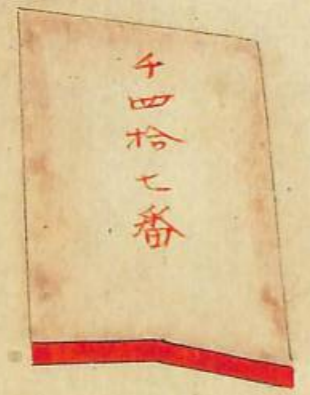 千四拾七番